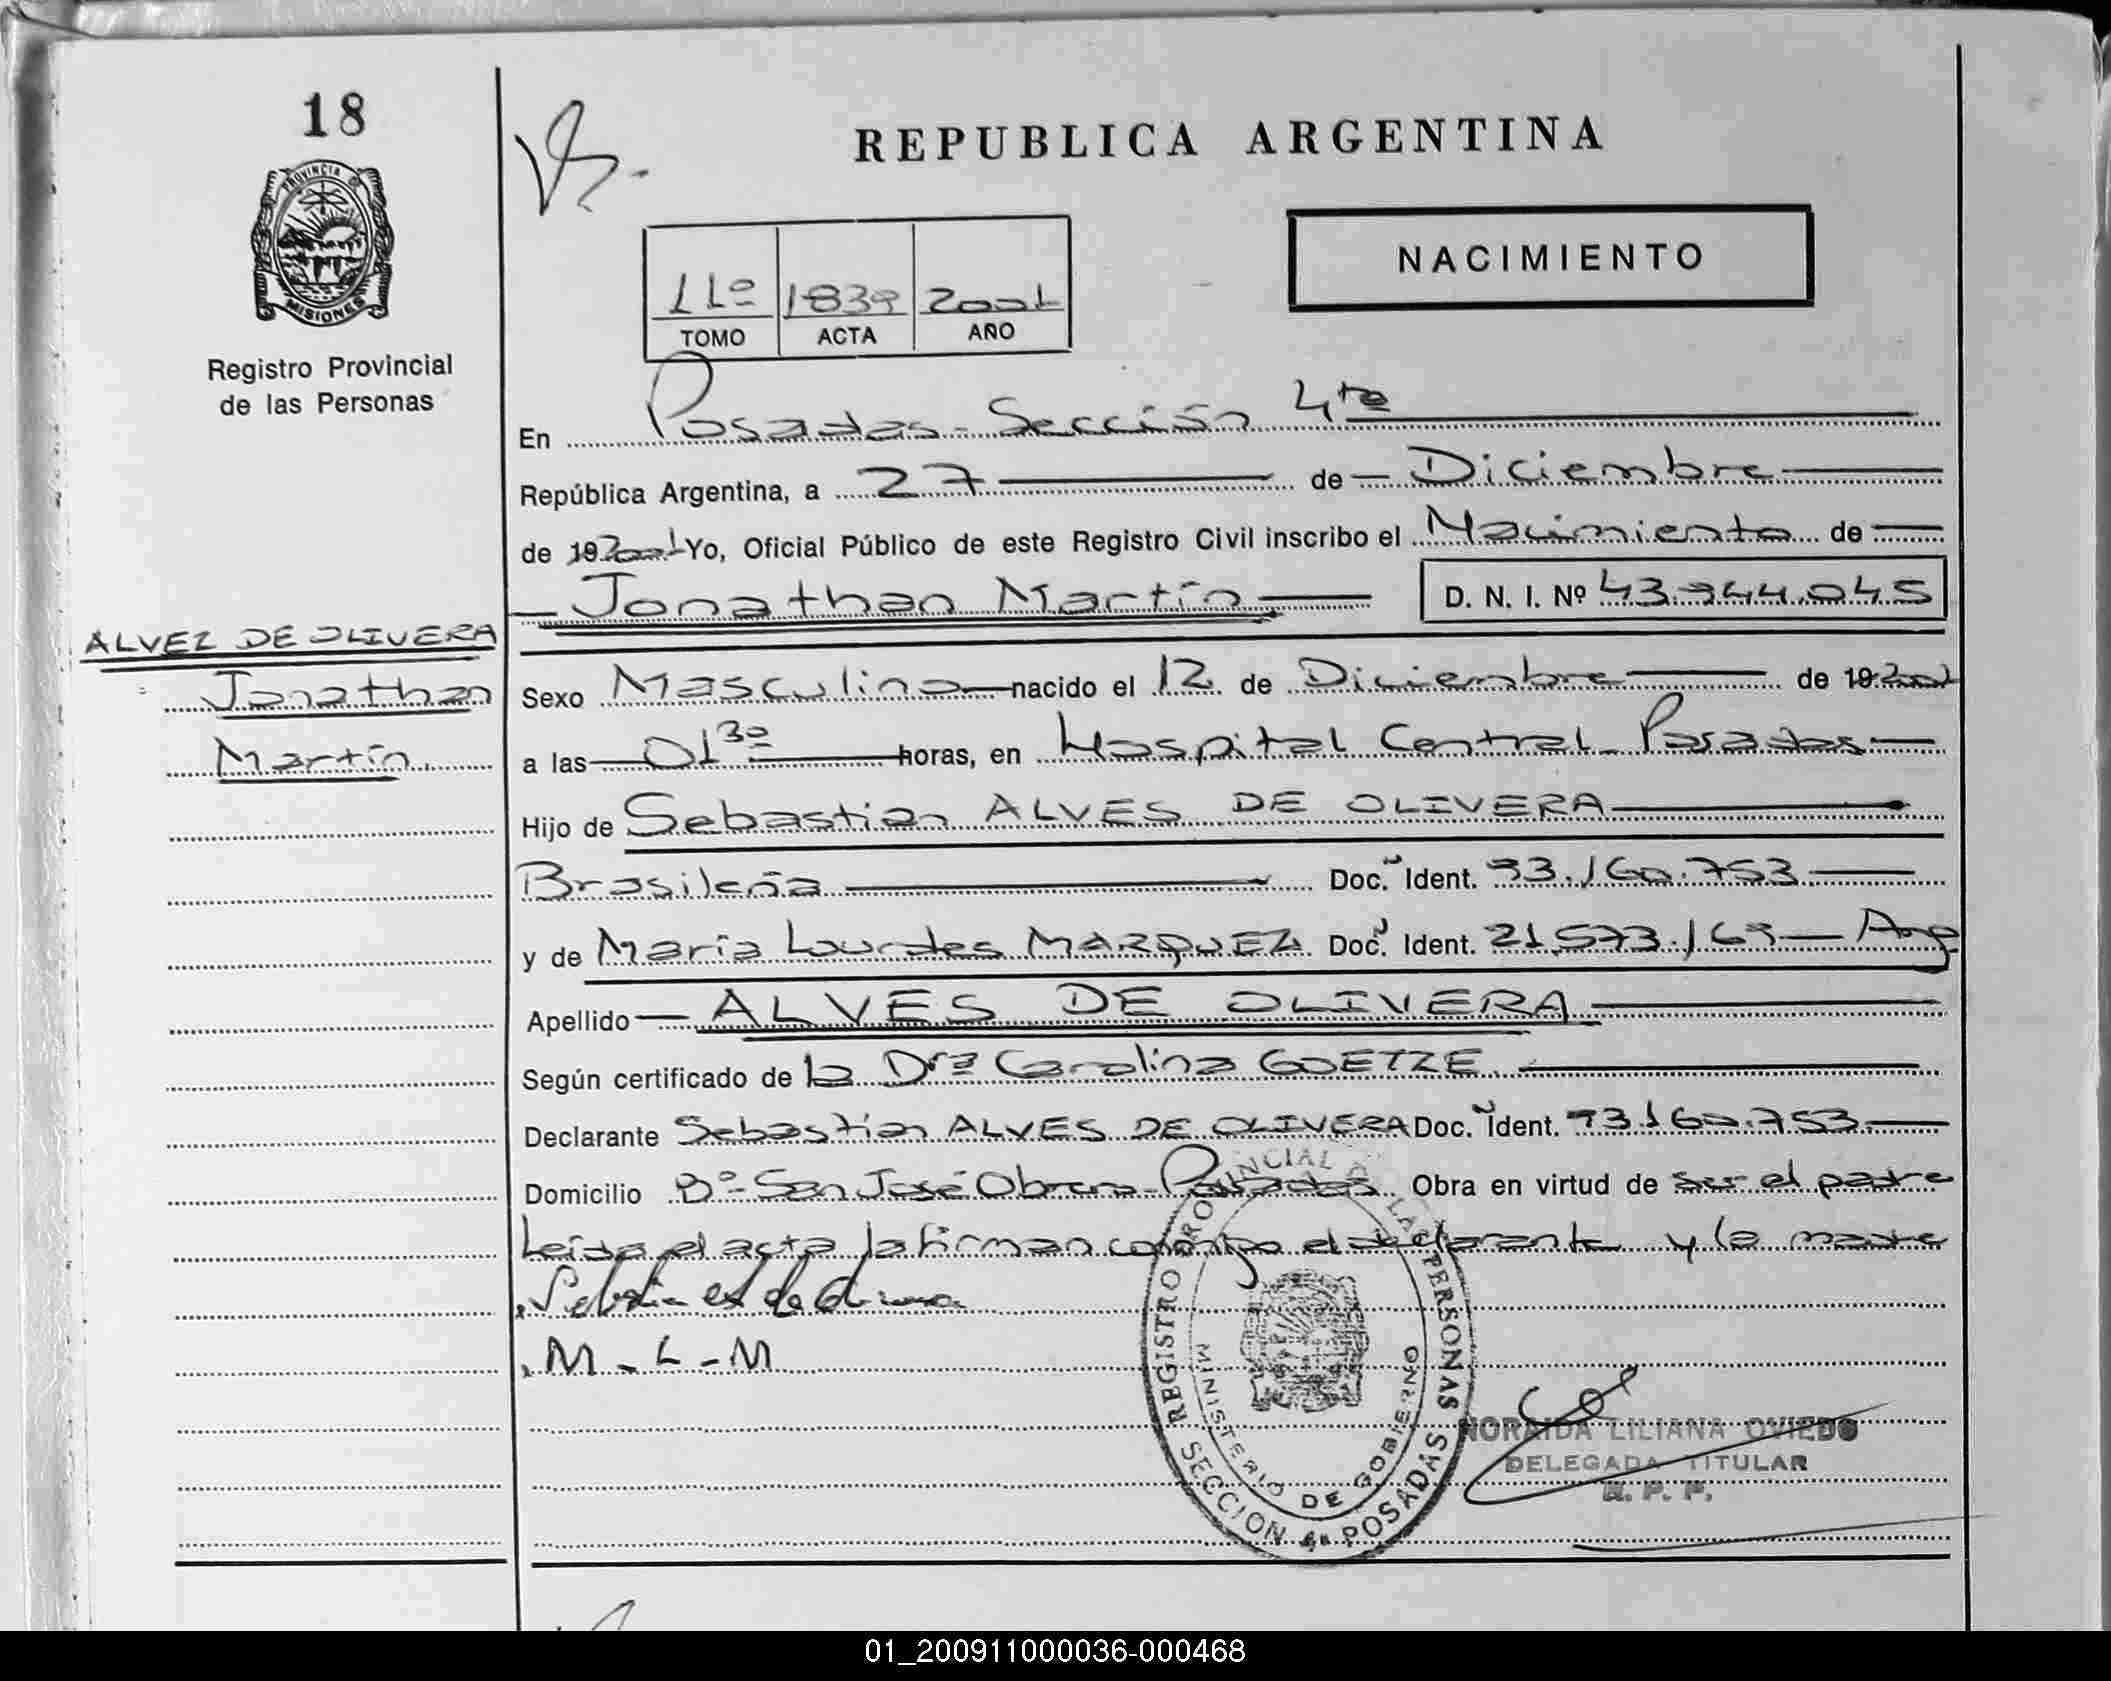 18
REPUBLICA ARGENTINA
PROVINCIA DE
MISIONES
NACIMIENTO
11º 1839 2001
TOMO ACTA AÑO
Registro Provincial
de las Personas
En Posadas - Sección 4ta
República Argentina, a 27 de Diciembre
de 19 2001 Yo, Oficial Público de este Registro Civil inscribo el Nacimiento de
Jonathan Martín D. N. I. Nº 43.944.045
ALVEZ DE OLIVERA
Jonathan
Martín.
Sexo Masculino nacido el 12 de Diciembre de 19 2001
a las 01 30 horas, en Hospital Central - Posadas
Hijo de Sebastian ALVES DE OLIVERA
Brasileña Doc. Ident. 93.160.753
y de María Lourdes MARQUEZ Doc. Ident. 21.573.169 - Arg
Apellido - ALVES DE OLIVERA
Según certificado de la Dra Carolina GOETZE
Declarante Sebastian ALVES DE OLIVERA Doc. Ident. 93.160.753
Domicilio Bº San José Obrero - Posadas Obra en virtud de ser el padre
Leída el acta la firman conmigo el declarante y la madre
M - L - M
REGISTRO PROVINCIAL DE LAS PERSONAS
MINISTERIO DE GOBIERNO
SECCION 4a POSADAS
NORAIDA LILIANA OVIEDO
DELEGADA TITULAR
R. P. P.
01_200911000036-000468